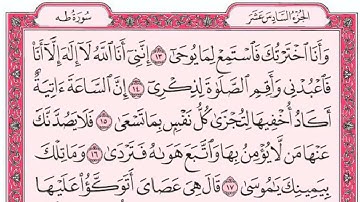 الجزء السادس عشر
سورة طه
وَأَنَا ٱخۡتَرۡتُكَ فَٱسۡتَمِعۡ لِمَا يُوحَىٰٓ ١٣ إِنَّنِيٓ أَنَا ٱللَّهُ لَآ إِلَٰهَ إِلَّآ أَنَا۠
فَٱعۡبُدۡنِي وَأَقِمِ ٱلصَّلَوٰةَ لِذِكۡرِيٓ ١٤ إِنَّ ٱلسَّاعَةَ ءَاتِيَةٌ
أَكَادُ أُخۡفِيهَا لِتُجۡزَىٰ كُلُّ نَفۡسِۭ بِمَا تَسۡعَىٰ ١٥ فَلَا يَصُدَّنَّكَ
عَنۡهَا مَن لَّا يُؤۡمِنُ بِهَا وَٱتَّبَعَ هَوَىٰهُ فَتَرۡدَىٰ ١٦ وَمَا تِلۡكَ
بِيَمِينِكَ يَٰمُوسَىٰ ١٧ قَالَ هِيَ عَصَايَ أَتَوَكَّؤُاْ عَلَيۡهَا